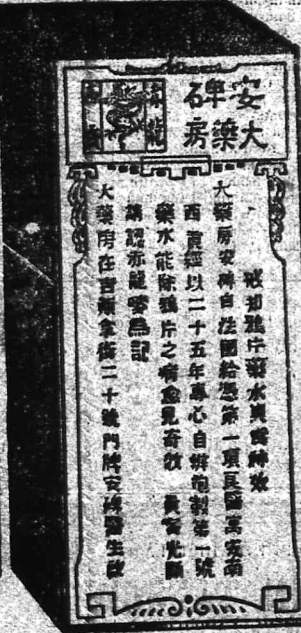 安碑
大藥房
赤龍
戒却鴉片藥水真實神效
大藥房安碑自法國給憑第一項良醫寓安南
西貢經以二十五年專心自辦炮制第一號
藥水能除鴉片之癮愈見奇效 貴客光顧
請認赤龍嘜為記
大藥房在吉慎拿街二十號門牌安碑醫生啟